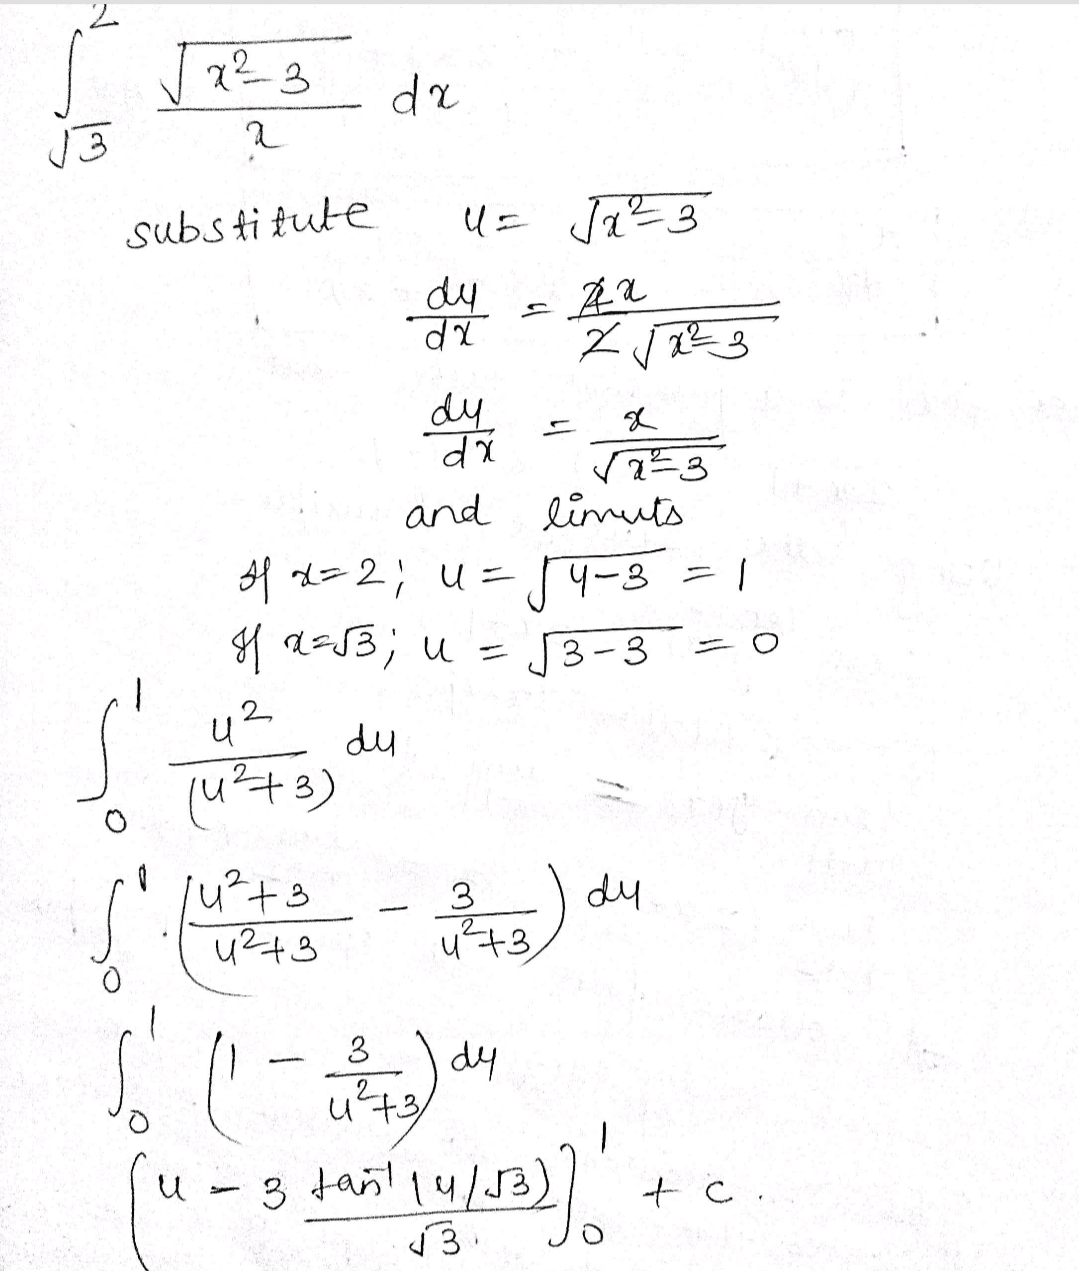 ∫_{√3}^{2} √(x²-3)/x dx
substitute u = √(x²-3)
du/dx = 2x/(2√(x²-3))
du/dx = x/√(x²-3)
and limits
If x=2; u = √(4-3) = 1
If x=√3; u = √(3-3) = 0
∫_{0}^{1} u²/(u²+3) du
∫_{0}^{1} ((u²+3)/(u²+3) - 3/(u²+3)) du
∫_{0}^{1} (1 - 3/(u²+3)) du
[u - 3 tan⁻¹(u/√3)/√3]_{0}^{1} + c.